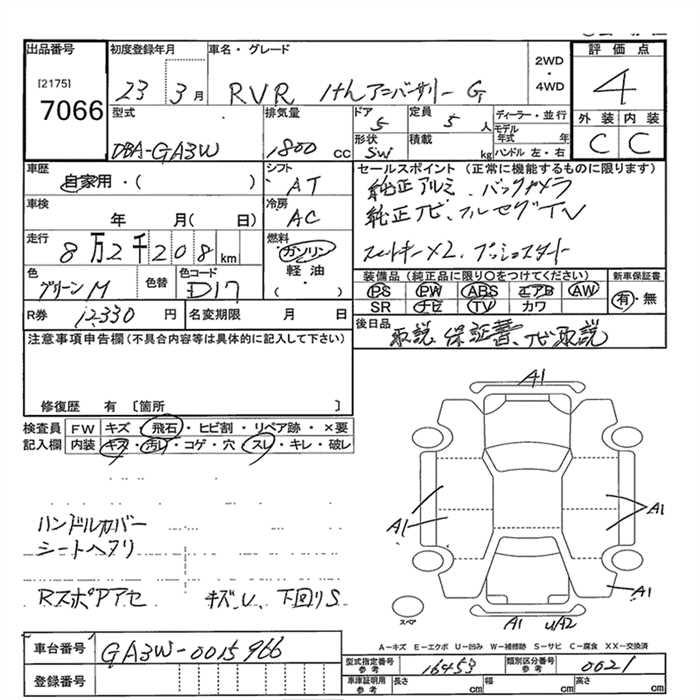 出品番号 初度登録年月 車名・グレード 評価点
[2175]
7066
23 3月 RVR 1thアニバーサリー G
2WD
・
4WD
4
外装 内装
C C
型式 排気量 ドア 定員 ディーラー・並行
DBA-GA3W 1800cc 5 5人
モデル年式 年
形状 積載
SW kg ハンドル 左・右
車歴 シフト セールスポイント (正常に機能するものに限ります)
自家用・( ) AT
純正アルミ、バックカメラ
車検 冷房
年 月( 日) AC
純正ナビ、フルセグTV
走行 燃料
8万2千208km ガソリン
スマートキー×2、プッシュスタート
軽油
・
( )
色 色替 色コード
グリーンM D17
装備品 (純正品に限り〇をつけてください) 新車保証書
PS PW ABS エアB AW
SR ナビ TV カワ
有・無
R券 12330円 名変期限 月 日
後日品
取説、保証書、ナビ取説
注意事項申告欄(不具合内容等は具体的に記入して下さい)
修復歴 有 〔箇所 〕
検査員 FW キズ・飛石・ヒビ割・リペア跡・×要
記入欄 内装 キズ・汚レ・コゲ・穴・スレ・キレ・破レ
A1
A1
A1
A1
A1 U/A2
スペア
ハンドルカバー
シートヘタリ
RスポPアセ キズU、下回りS
A−キズ E−エクボ U−凹み W−補修跡 S−サビ C−腐食 XX−交換済
車台番号 GA3W-0015966
登録番号
型式指定番号 参考 16453 類別区分番号 参考 0021
車庫証明用 参考 長さ cm 幅 cm 高さ cm